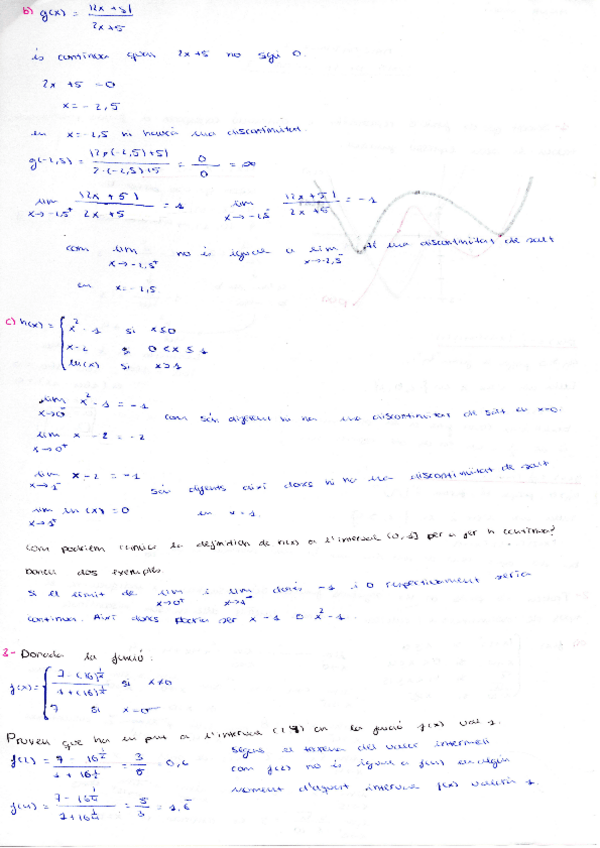 b) g(x) = |2x + 5| / 2x+5
és contínua quan 2x+5 no sigui 0.
2x + 5 = 0
x = -2,5
en x = -2,5 hi haurà una discontinuïtat.
g(-2,5) = |2·(-2,5)+5| / 2·(-2,5)+5 = 0/0 = ∞
lim x→-2,5⁺ |2x + 5| / 2x + 5 = 1 lim x→-2,5⁻ |2x + 5| / 2x + 5 = -1
com lim x→-2,5⁺ no és igual a lim x→-2,5⁻ hi una discontinuitat de salt
en x = -2,5
c) h(x) = { x² - 1 si x ≤ 0
x - 2 si 0 < x ≤ 1
ln(x) si x > 1
lim x→0⁻ x² - 1 = -1
com són diferent hi ha una discontinuitat de salt en x=0.
lim x→0⁺ x - 2 = -2
lim x→1⁻ x - 2 = -1
són diferents així doncs hi ha una discontinuitat de salt
lim x→1⁺ ln(x) = 0 en x = 1.
Com podríem canviar la definición de h(x) a l'interval (0, 1] per a fer h contínua?
Doneu dos exemples.
Si el límit de lim x→0⁺ i lim x→1⁻ donés -1 i 0 respectivament seria
contínua. Així doncs podria ser x - 1 o x² - 1.
3- Donada la funció:
f(x) = { 7 - (16)^(1/x) / 1 + (16)^(1/x) si x≠0
7 si x = 0
Proveu que ha un punt a l'interval (2,4) on la funció f(x) val 1.
f(2) = 7 - 16^(1/2) / 1 + 16^(1/2) = 3/5 = 0,6
Segons el teorema del valor intermedi
com f(2) no és igual a f(4) en algun
f(4) = 7 - 16^(1/4) / 1 + 16^(1/4) = 5/3 = 1,6
moment d'aquest interval f(x) valdrà 1.